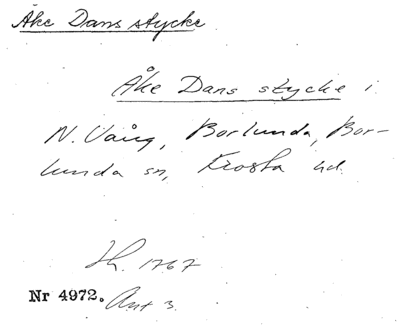 Åke Dans stycke
Åke Dans stycke i
N. Vång, Borlunda, Bor-
lunda sn, Frosta hd.
1767
Nr 4972. Ant 3.